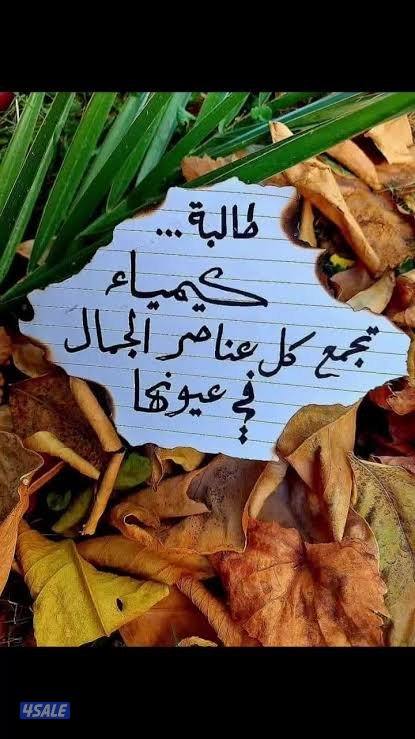 طالبة ...
كيمياء
تجمع كل عناصر الجمال
في عيونها
4SALE